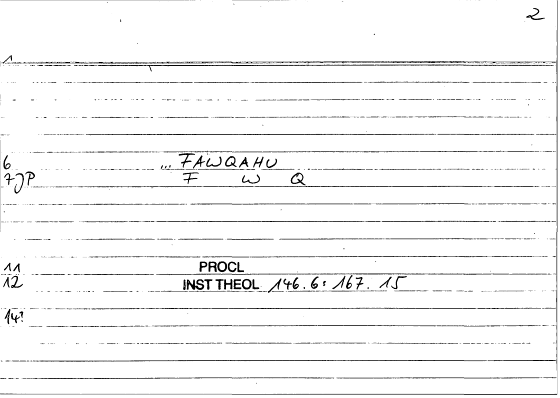 2
1
6 ... FAWQAHU
7JP F W Q
11 PROCL
12 INST THEOL 146.6: 167.15
14?